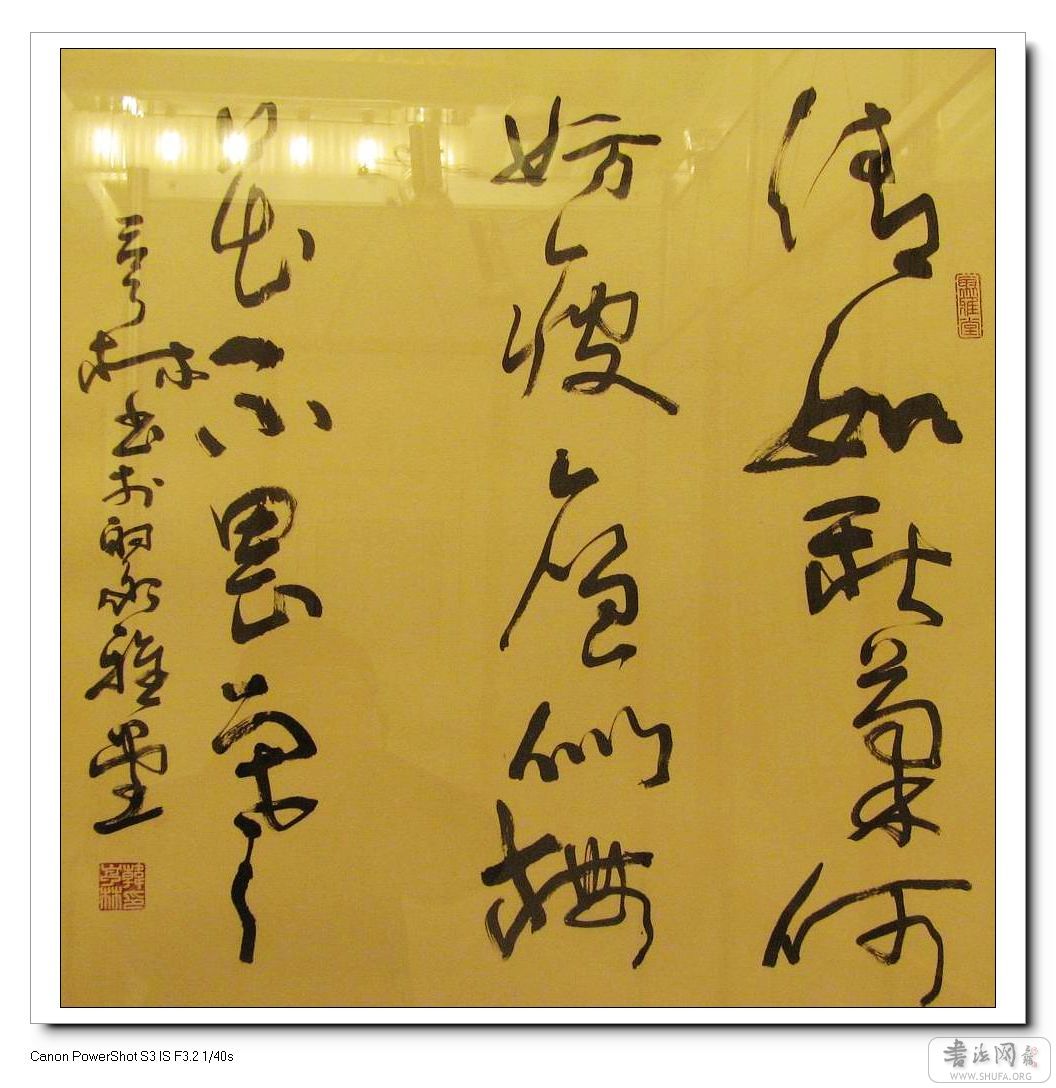 清如秋菊何
妨瘦廉似梅
花不畏寒
亭林书于雅堂
Canon PowerShot S3 IS F3.2 1/40s
书法网
WWW.SHUFA.ORG